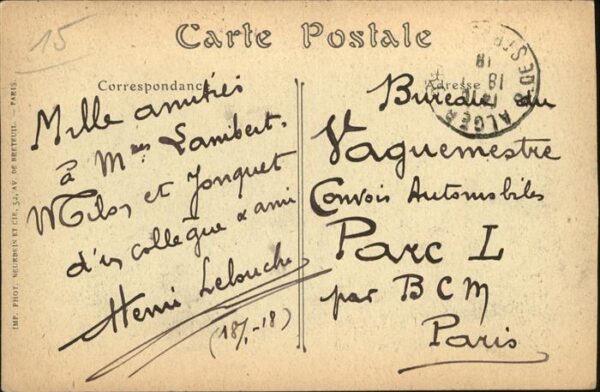 15
Carte Postale
Correspondance
Mille amitiés
à Mrs Lambert,
Milos et Jonquet
d'un collègue & ami
Henri Lelouche
(18/1-18)
Adresse
Bureau du
Vaguemestre
Convois Automobiles
Parc L
par BCM
Paris
ALGER
18
18
IMP. PHOT. NEURDEIN ET CIE, 52, AV. DE BRETEUIL. - PARIS.